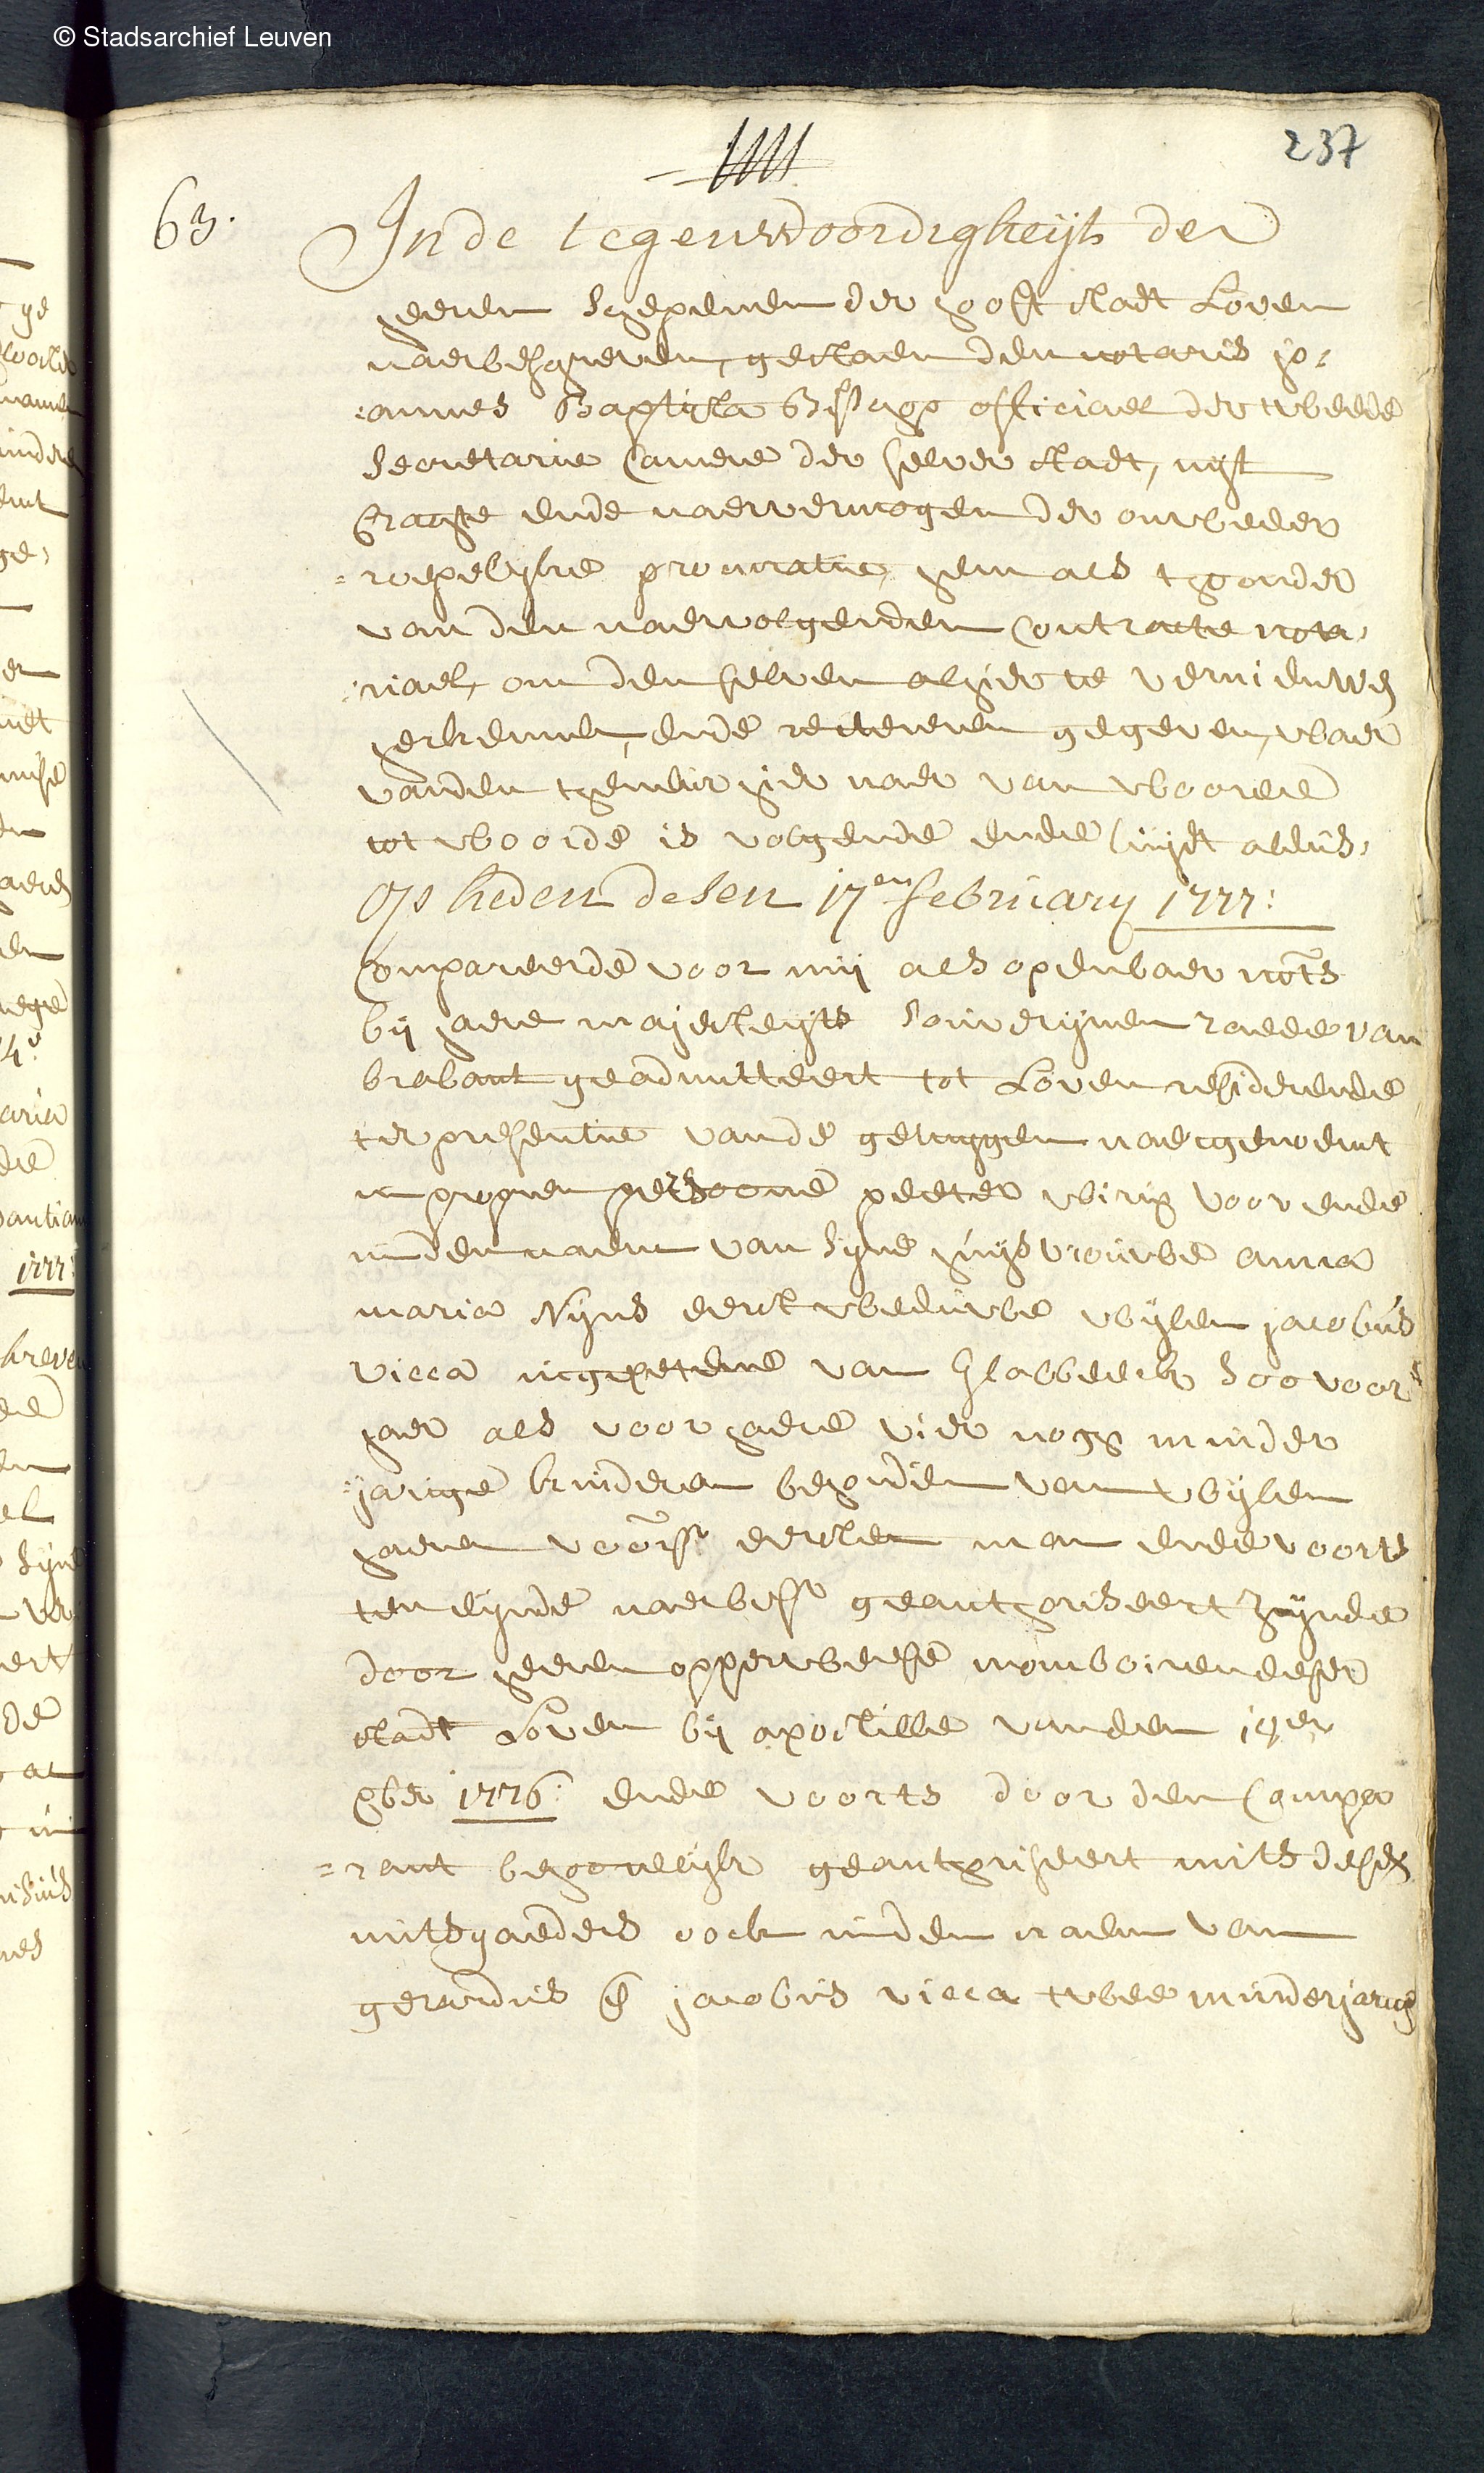 © Stadsarchief Leuven
237
63.
In de tegenwoordigheijt der
heeren schepenen der hooft stadt Loven
naerbeschreven, gestaen den notaris jo,
:annes Baptista official der tweede
secretarie camere der selver stadt, uijt
crachte ende naer vermogen der onweder
=roepelijcke procuratie, hem als thoonder
van den naervolgenden contracte nota,
:riael, om den selven alhier te vernieuwen
herkennen, ende reitereren gegeven, waer
vanden teneur hier naer van woorde
tot woorde is volgende ende luijdt aldus,
Op heden desen 17en february 1777:
Compareerde voor mij als openbaer nots
bij haere majesteijts souverijnen raede van
brabant geadmitteert tot Loven residerende
ter presentie vande getuijgen naergenoemt
in propren persoone peeter voor ende
inden naem van sijne huijsvrouwe anna
maria Nijns eerst weduwe wijlen jacobus
vicca ingesetene van Glabbeeck soo voor
haer als voor haere vier noch minder
:jarige kinderen behouden van wijlen
haeren voors. eersten man ende voorts
ten eijnde naerbes. geauthoriseert zijnde
door heeren opperweese momboiren deser
stadt Loven bij apostille vanden 19er
9ber 1776: ende voorts door den compa
=rant behoorelijck geauthoriseert mits desen
mitsgaeders oock inden naem van
gerardus en jacobus vicca twee minderjarige